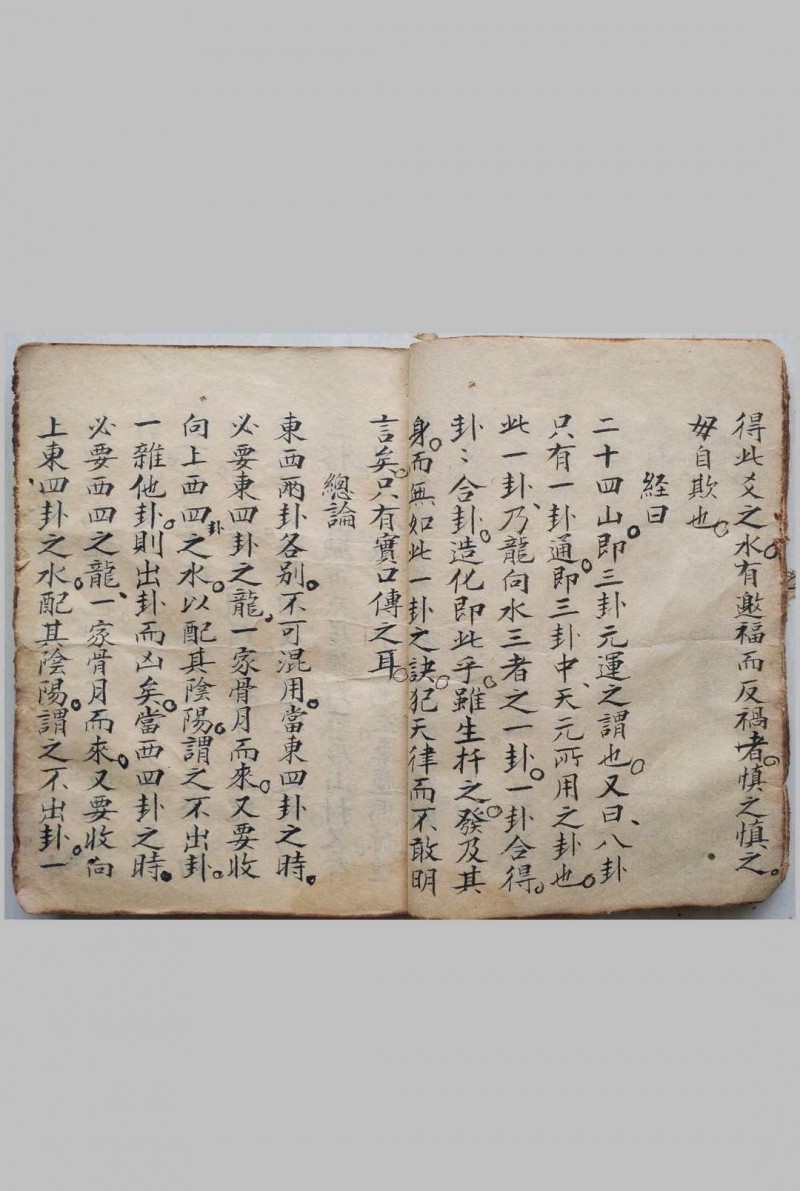 得此爻之水。有邀福而反禍者。慎之慎之。
毋自欺也。
経曰
二十四山。即三卦元運之謂也。又曰、八卦
只有一卦通。即三卦中、天元所用之卦也。
此一卦、乃龍向水三者之一卦。一卦合得。
卦〻合卦。造化即此乎。雖生杆之。發及其
身。而無如此一卦之訣。犯天律而不敢明
言矣。只有實口傳之耳。
總論
東西兩卦各別。不可混用。當東四卦之時。
必要東四卦之龍。一家骨月而來。又要收
向上西四卦之水。以配其陰陽。謂之不出卦。
一雜他卦。則出卦而凶矣。當西四卦之時。
必要西四之龍、一家骨月而來。又要收向
上東四卦之水。配其陰陽。謂之不出卦。一